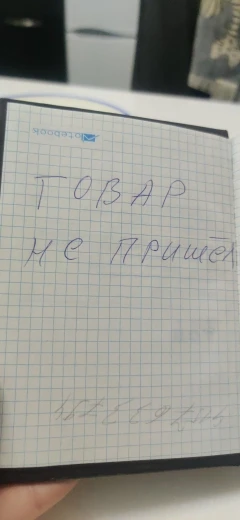 Notebook
ТОВАР
НЕ ПРИШЁЛ